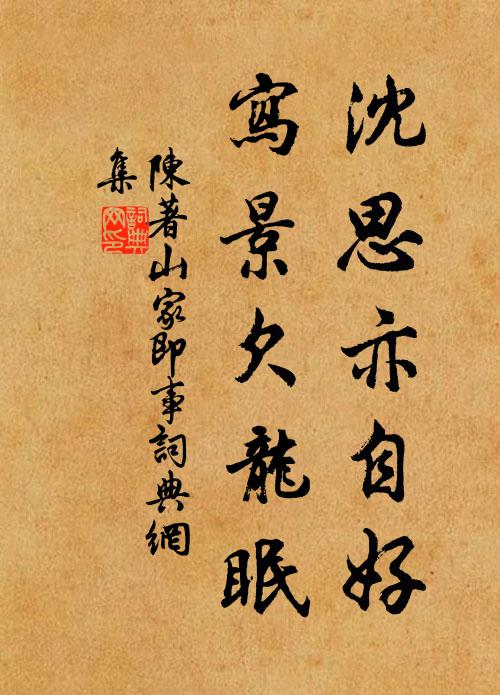 沈思亦自好
寫景欠龍眠
陳著山家即事詞典網
集
詞典網印